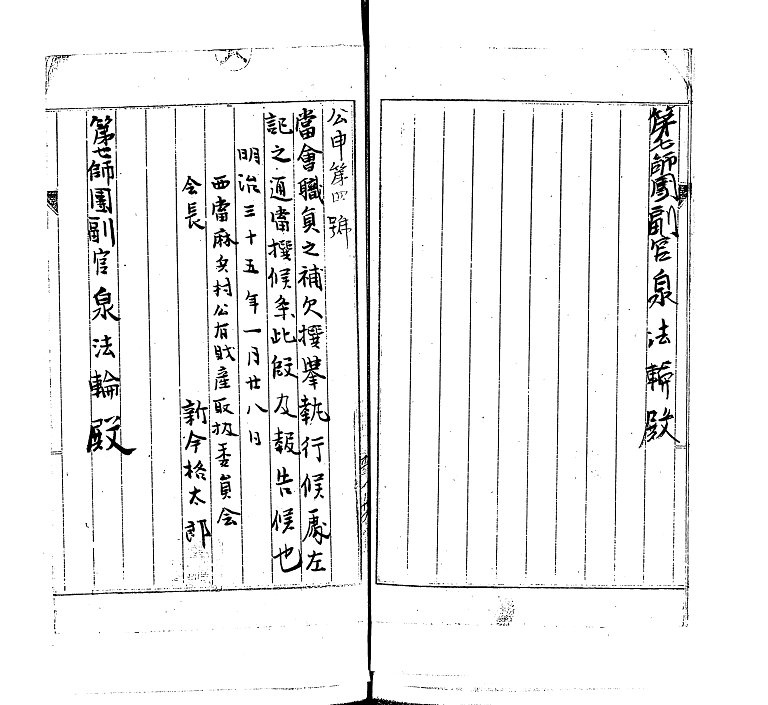 第七師團副官泉法輪殿
公申第四號
當會職員之補欠撰擧執行候處左
記之通當撰候条此段及報告候也
明治三十五年一月廿八日
西當麻兵村公有財産取扱委員会
会長
新今格太郎
第七師團副官泉法輪殿